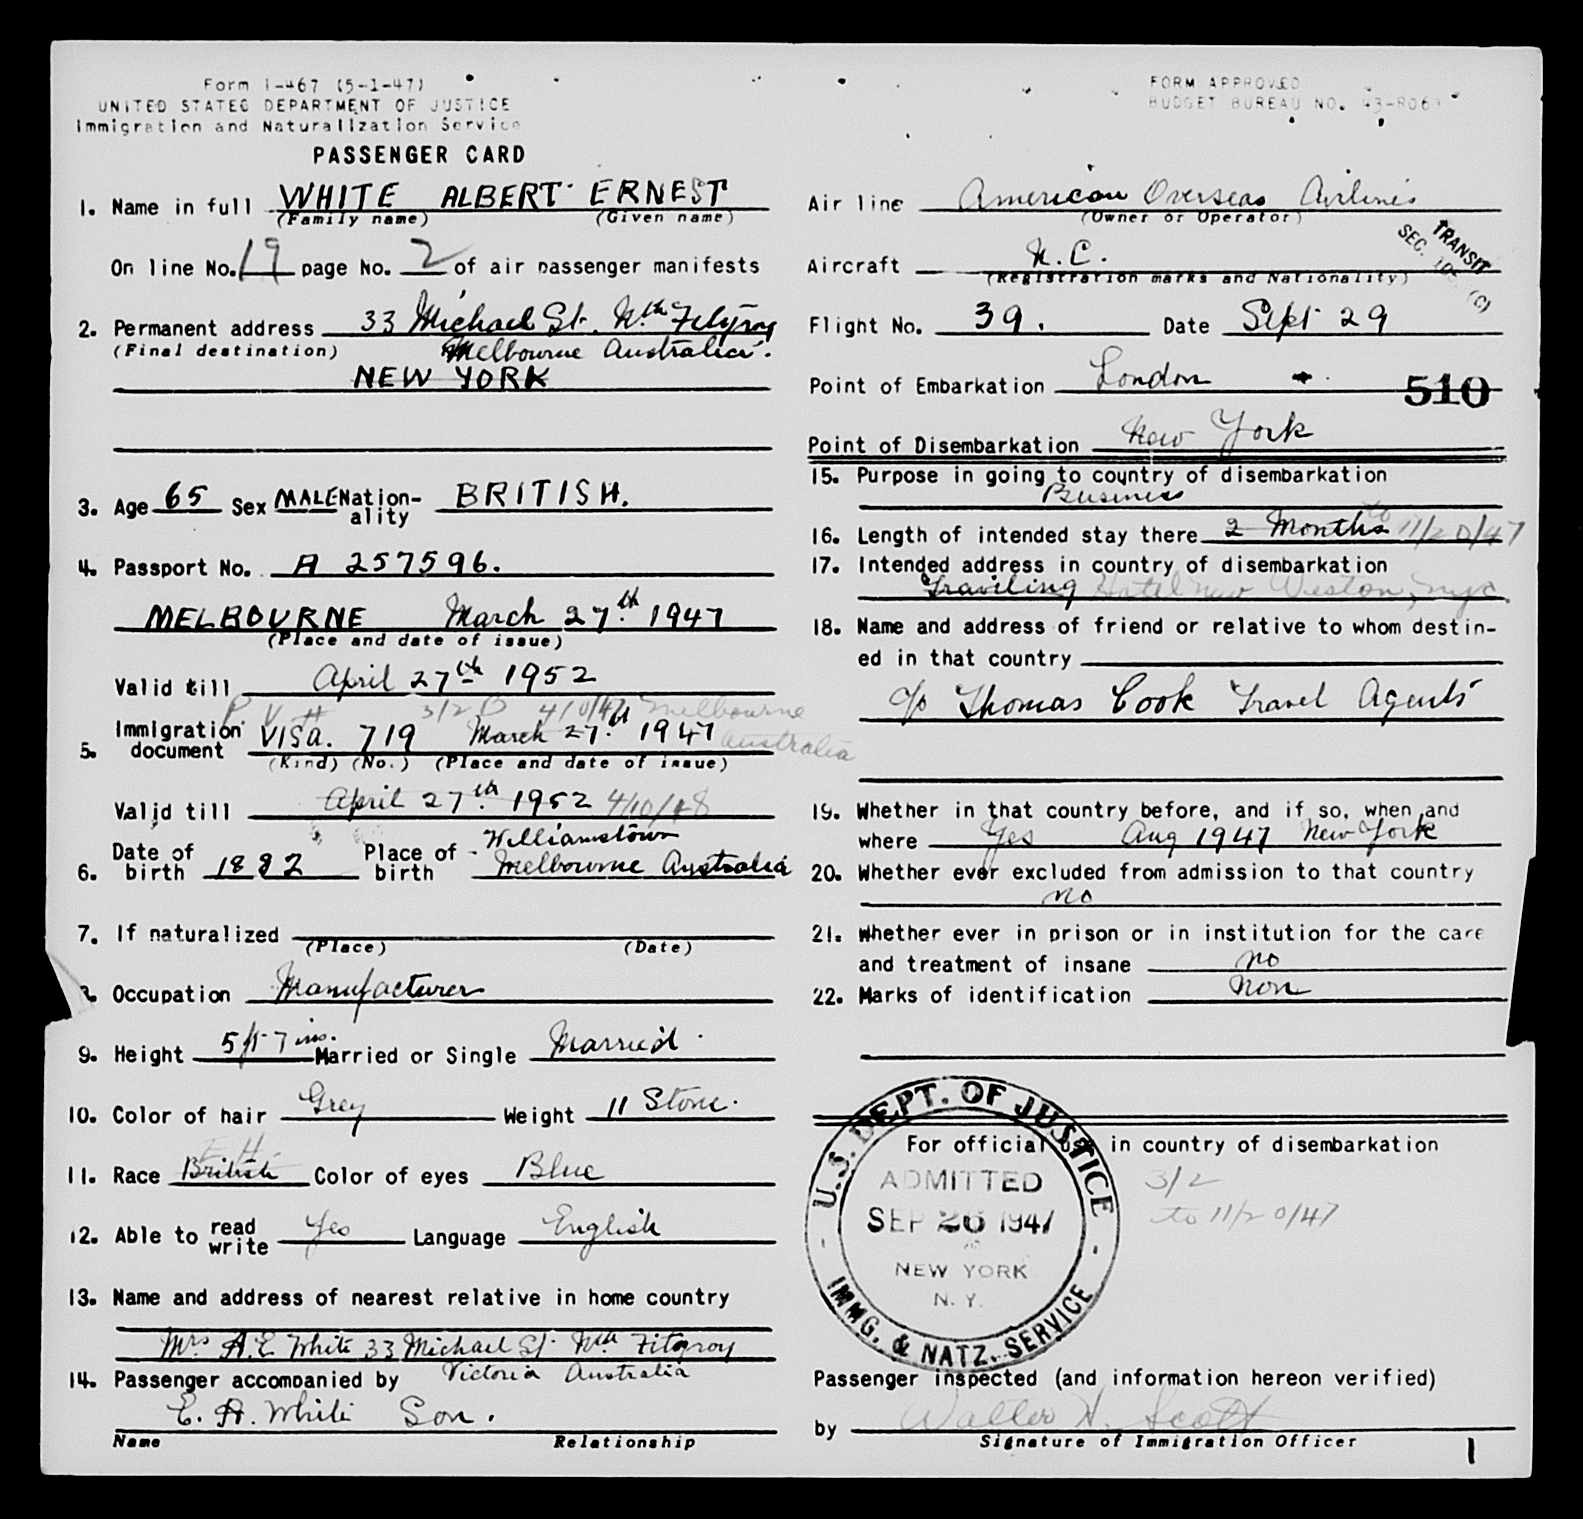 Form I-467 (5-1-47)
UNITED STATES DEPARTMENT OF JUSTICE
Immigration and Naturalization Service
PASSENGER CARD
1. Name in full WHITE ALBERT ERNEST
(Family name) (Given name)
On line No. 19 page No. 2 of air passenger manifests
2. Permanent address 33 Michael St. Nth Fitzroy
(Final destination) Melbourne Australia.
NEW YORK
3. Age 65 Sex MALE Nation-ality BRITISH.
4. Passport No. A 257596.
MELBOURNE March 27th 1947
(Place and date of issue)
Valid till April 27th 1952
P V # 3/2 4/10/47 Melbourne
5. Immigration document VISA. 719 March 27th 1947 Australia
(Kind) (No.) (Place and date of issue)
Valid till April 27th 1952 4/10/48
Williamstown
6. Date of birth 1882 Place of birth Melbourne Australia
7. If naturalized
(Place) (Date)
8. Occupation Manufacturer
9. Height 5 ft 7 ins. Married or Single Married.
10. Color of hair Grey Weight 11 Stone.
11. Race British Color of eyes Blue
12. Able to read write Yes Language English
13. Name and address of nearest relative in home country
Mrs A.E. White 33 Michael St. Nth Fitzroy
Victoria Australia
14. Passenger accompanied by
E. A. White Son.
Name Relationship
FORM APPROVED
BUDGET BUREAU NO. 43-R06
Air line American Overseas Airlines
(Owner or Operator)
TRANSIT
SEC. (C)
Aircraft N.C.
(Registration marks and Nationality)
Flight No. 39. Date Sept 29
Point of Embarkation London
510
Point of Disembarkation New York
15. Purpose in going to country of disembarkation
Business
16. Length of intended stay there 2 Months to 11/20/47
17. Intended address in country of disembarkation
Traveling Hotel New Weston, nyc.
18. Name and address of friend or relative to whom destin-
ed in that country
c/o Thomas Cook Travel Agents
19. Whether in that country before, and if so, when and
where Yes Aug 1947 New York
20. Whether ever excluded from admission to that country
no
21. Whether ever in prison or in institution for the care
and treatment of insane no
22. Marks of identification non
For official use in country of disembarkation
U.S. DEPT. OF JUSTICE
ADMITTED
SEP 26 1947
NEW YORK
N. Y.
IMMG. & NATZ. SERVICE
3/2
to 11/20/47
Passenger inspected (and information hereon verified)
by Walter H. Scott
Signature of Immigration Officer
1